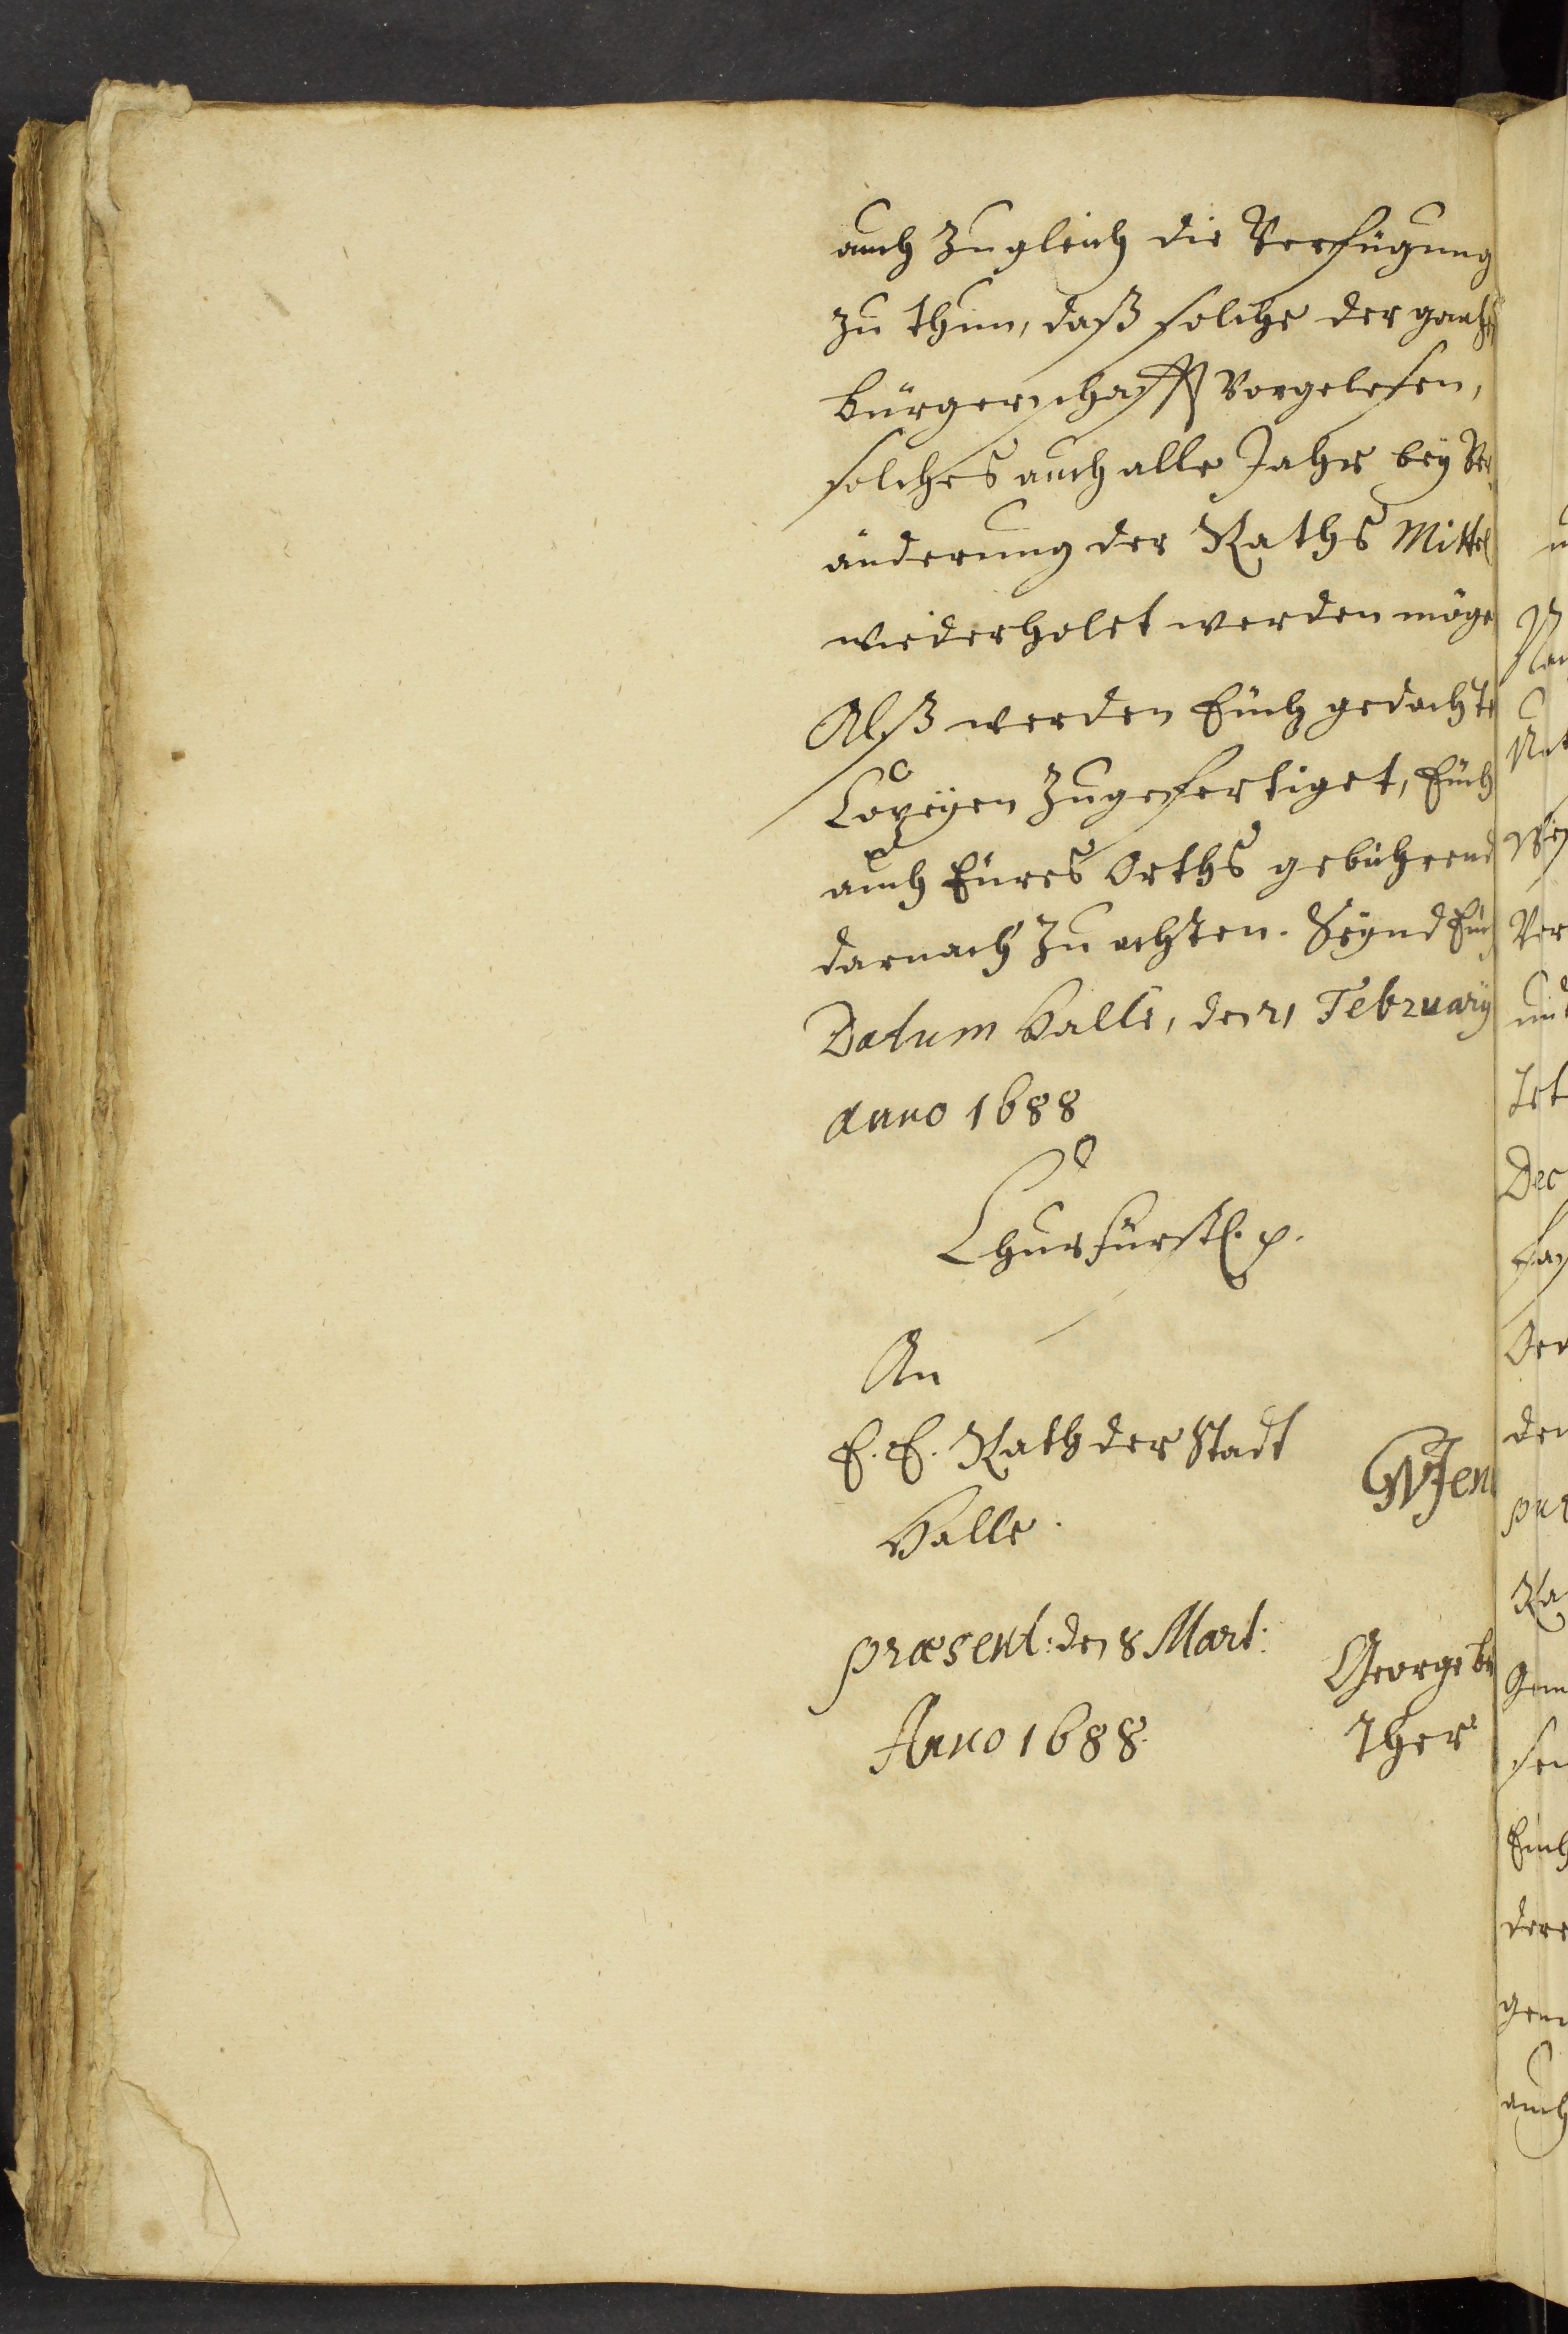 auch zugleich die Verfügung
zu thun, daß solche der gantzen
bürgerschafft vorgelesen,
solches auch alle Jahr bey Ver¬
änderung der Raths Mittel
wiederholet werden möge
Alß werden Euch gedachte
Copeyen zugefertiget, Euch
auch Eures Orths gebührend
darnach zu achten. Seynd Euch
Datum Halle, den 21 February
anno 1688
Churfürstl. p.
An
E. E. Rath der Stadt
Halle.
GWJen
præsent: den 8 Mart:
Anno 1688.
George
ther
Ver
und
Dec
den
Euch
auch